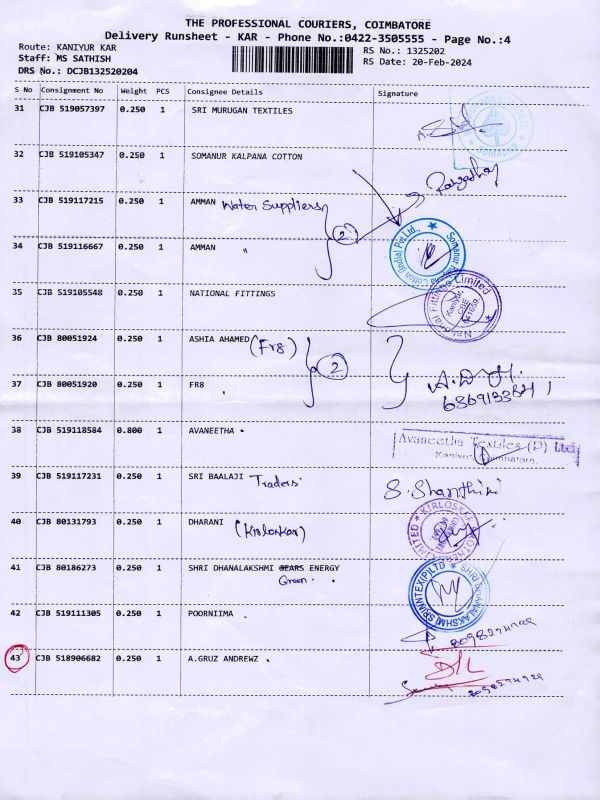 THE PROFESSIONAL COURIERS, COIMBATORE
Delivery Runsheet - KAR - Phone No.:0422-3505555 - Page No.:4
Route: KANIYUR KAR
RS No.: 1325202
Staff: MS SATHISH
RS Date: 20-Feb-2024
DRS No.: DCJB132520204
S No Consignment No Weight PCS Consignee Details Signature
31 CJB 519057397 0.250 1 SRI MURUGAN TEXTILES
32 CJB 519105347 0.250 1 SOMANUR KALPANA COTTON
33 CJB 519117215 0.250 1 AMMAN Water Suppliers
2
34 CJB 519116667 0.250 1 AMMAN "
Somanur Kalpana Cotton (India) Pvt Ltd.,
35 CJB 519105548 0.250 1 NATIONAL FITTINGS
Fittings Limited Kaniyur, CBE
36 CJB 80051924 0.250 1 ASHIA AHAMED (Fr8)
2
37 CJB 80051920 0.250 1 FR8
38 CJB 519118584 0.800 1 AVANEETHA
Avaneetha Textiles (P) Ltd
Kaniyur, Coimbatore.
39 CJB 519117231 0.250 1 SRI BAALAJI Traders
S. Shanthini
40 CJB 80131793 0.250 1 DHARANI (Kirloskar)
41 CJB 80186273 0.250 1 SHRI DHANALAKSHMI ENERGY
Green
SHRI DHANALAKSHMI SPINNTEX (P) LTD
42 CJB 519111305 0.250 1 POORNIIMA
43 CJB 518906682 0.250 1 A.GRUZ ANDREWZ
D/L